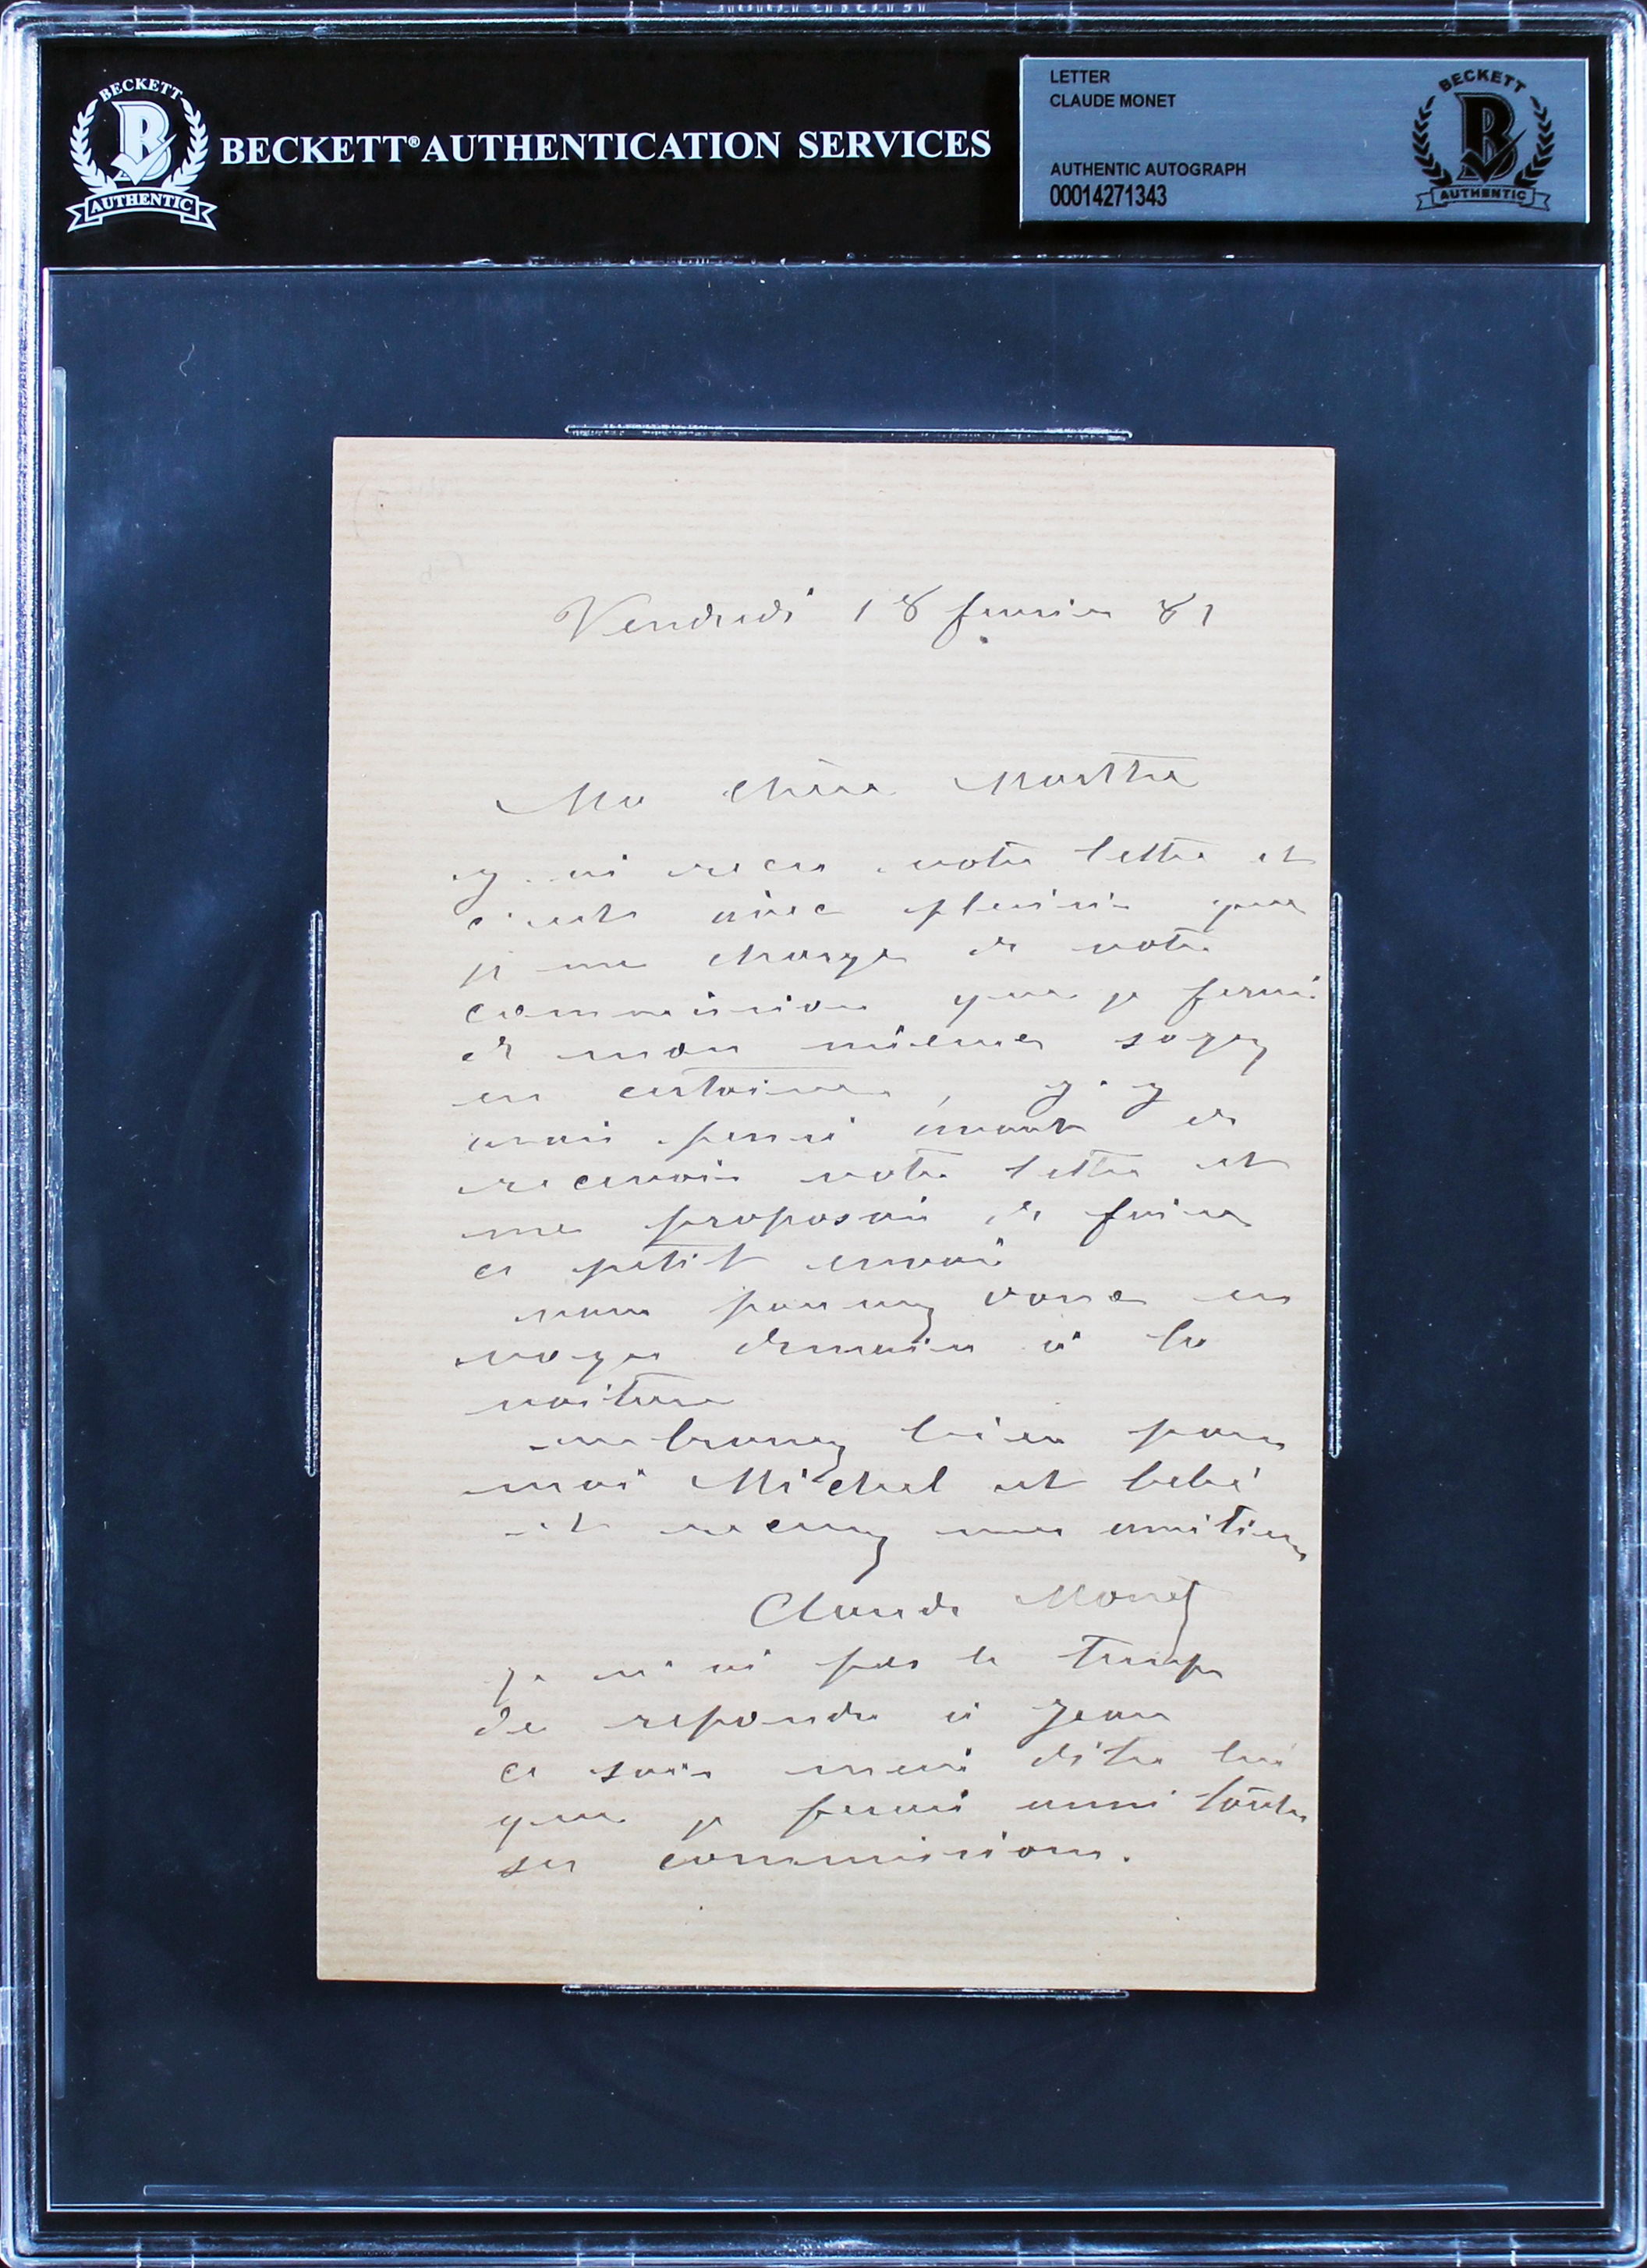 BECKETT
AUTHENTIC
BECKETT® AUTHENTICATION SERVICES
LETTER
CLAUDE MONET
AUTHENTIC AUTOGRAPH
00014271343
BECKETT
AUTHENTIC
Vendredi 18 fevrier 81
Ma chère Marthe
j'ai recu votre lettre et
c'est avec plaisir que
je me charge de votre
commission que je ferai
de mon mieux soyez
en certaine, j'y
avais pensé avant de
recevoir votre lettre et
me proposais de faire
ce petit envoi
vous pouvez donc en
voyer demain à la
voiture
embrassez bien pour
moi Michel et bébé
et recevez mes amitiés
Claude Monet
je n'ai pas le temps
de repondre à Jean
ce soir mais dites lui
que je ferai aussi toutes
ses commissions.